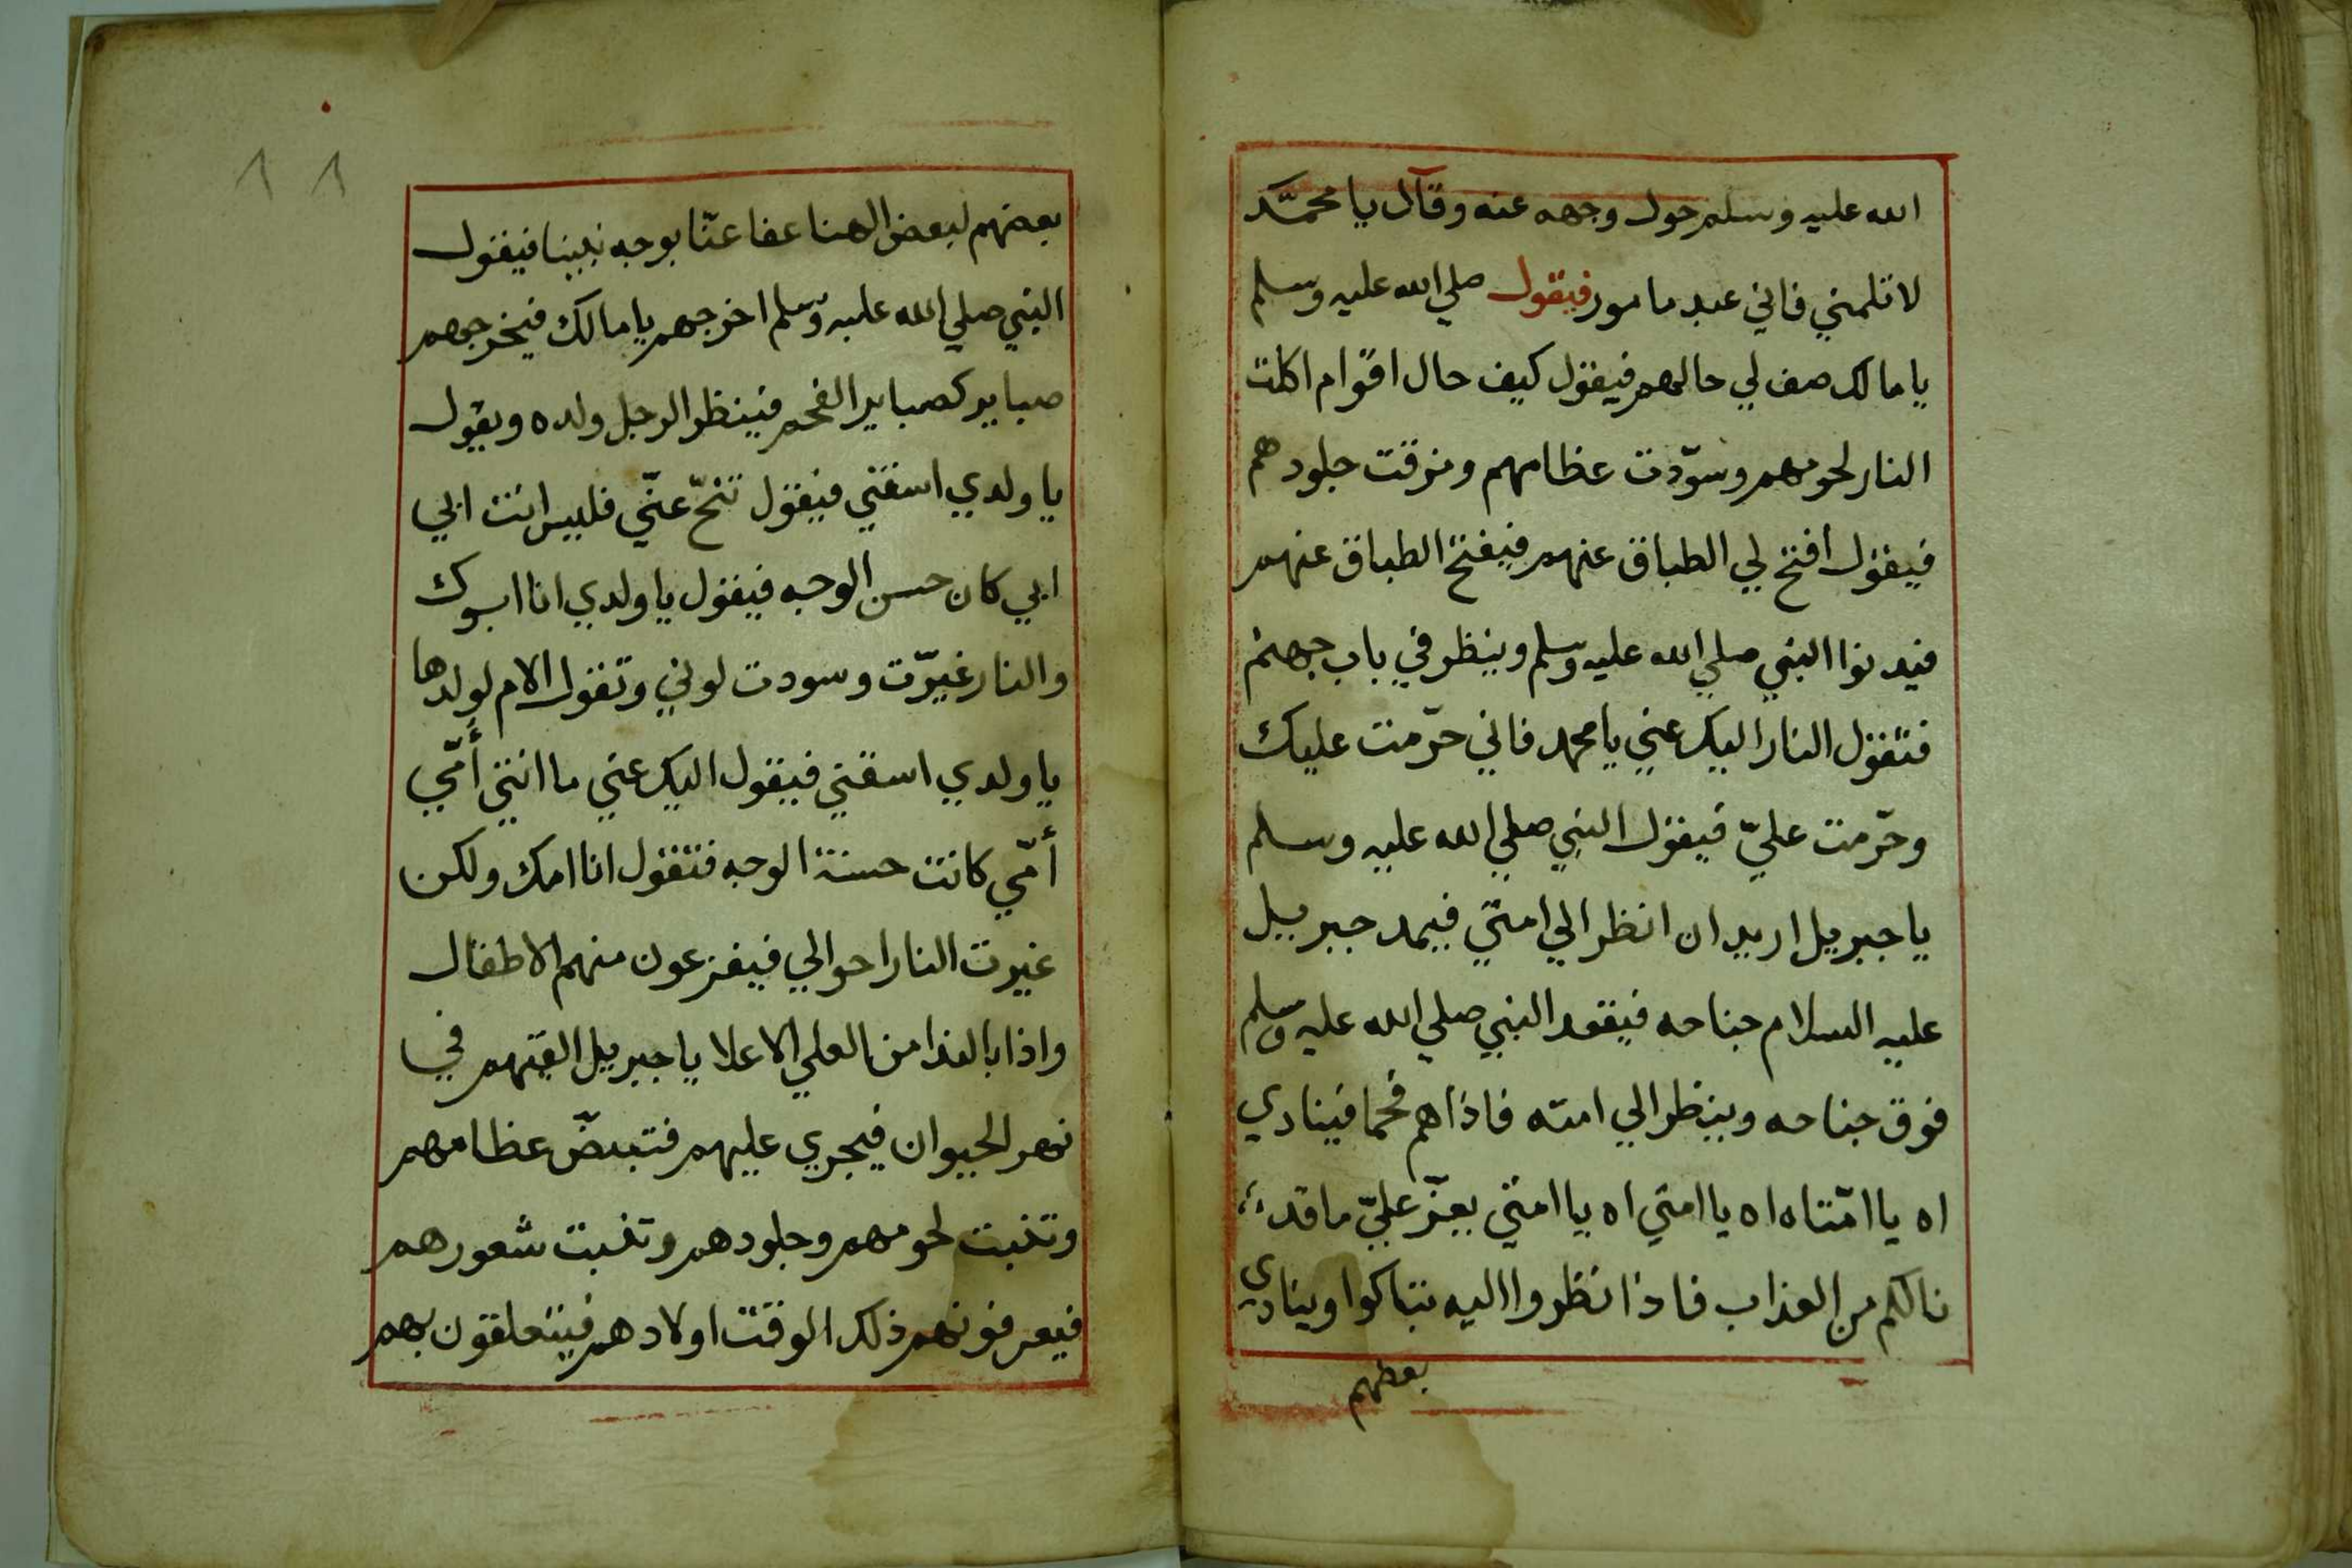 الله عليه وسلم حول وجهه عنه وقال يا محمد
لا تلمني فاني عبد مامور فيقول صلي الله عليه وسلم
يا مالك صف لي حالهم فيقول كيف حال اقوام اكلت
النار لحومهم وسوّدت عظامهم ومزقت جلودهم
فيقول افتح لي الطباق عنهم فيفتح الطباق عنهم
فيدنوا النبي صلي الله عليه وسلم وينظر في باب جهنم
فتقول النار اليك عني يا محمد فاني حرّمت عليك
وحرّمت عليّ فيقول النبي صلي الله عليه وسلم
يا جبريل اريد ان انظر الي امتي فيمد جبريل
عليه السلام جناحه فيقعد النبي صلي الله عليه وسلم
فوق جناحه وينظر الي امته فاذاهم فحما فينادي
اه يا امّتاه اه يا امتي اه يا امتي يعزّ عليّ ما قد
نالكم من العذاب فاذا نظروا اليه تباكوا وينادي
بعضهم
١١
بعضهم لبعض الهنا عفا عنّا بوجه نبينا فيقول
النبي صلي الله عليه وسلم اخرجهم يا مالك فيخرجهم
صبابر كصبابر الفحم فينظر الرجل ولده ويقول
يا ولدي اسقني فيقول تنحّ عنّي فليس انت ابي
ابي كان حسن الوجه فيقول يا ولدي انا ابوك
والنار غيّرت وسودت لوني وتقول الام لولدها
يا ولدي اسقني فيقول اليك عني ما انتي أمّي
أمّي كانت حسنة الوجه فتقول انا امك ولكن
غيرت النار احوالي فيفزعون منهم الاطفال
واذا بالندا من العلي الاعلا يا جبريل القيهم في
نهر الحيوان فيجري عليهم فتبيضّ عظامهم
وتنبت لحومهم وجلودهم وتنبت شعورهم
فيعرفونهم ذلك الوقت اولادهم فيتعلقون بهم